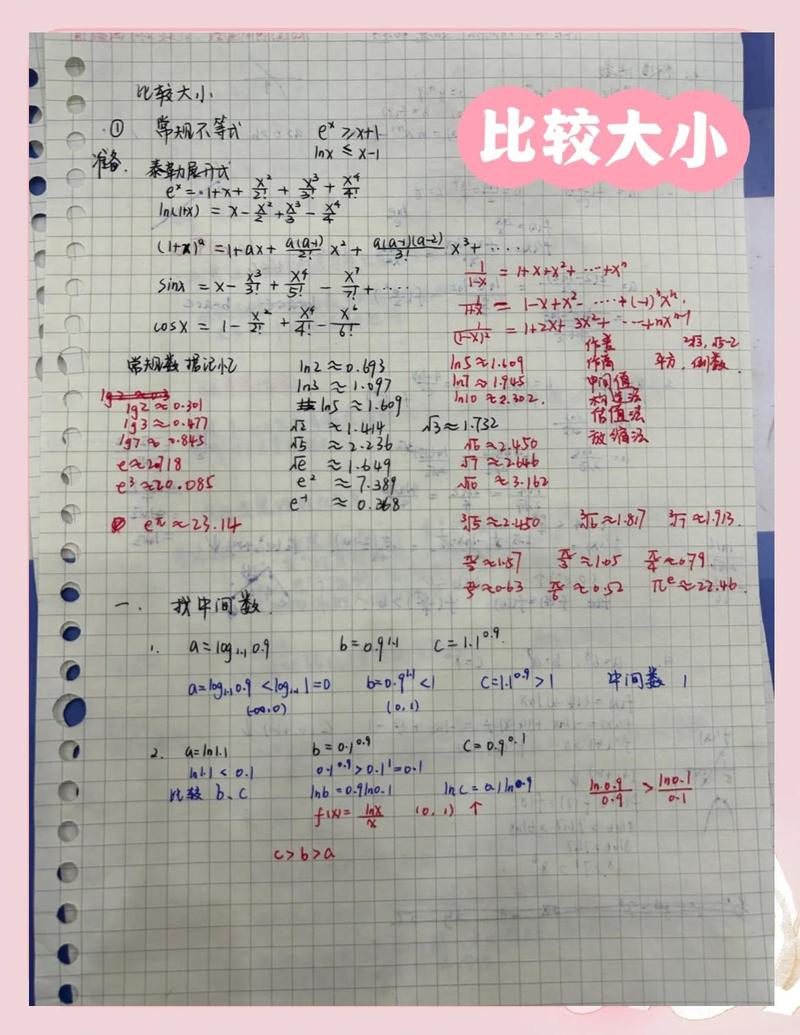 比较大小
比较大小
① 常规不等式 e^x ≥ x+1
ln x ≤ x-1
准备. 泰勒展开式
e^x = 1+x+\frac{x^2}{2!}+\frac{x^3}{3!}+\frac{x^4}{4!}
ln(1+x) = x-\frac{x^2}{2}+\frac{x^3}{3}-\frac{x^4}{4}
(1+x)^a = 1+ax+\frac{a(a-1)}{2!}x^2+\frac{a(a-1)(a-2)}{3!}x^3+……
sinx = x-\frac{x^3}{3!}+\frac{x^4}{5!}-\frac{x^7}{7!}+……
cosx = 1-\frac{x^2}{2!}+\frac{x^4}{4!}-\frac{x^6}{6!}
\frac{1}{1-x} = 1+x+x^2+…+x^n
\frac{1}{1+x} = 1-x+x^2-…+(-1)^n x^n.
\frac{1}{(1-x)^2} = 1+2x+3x^2+…+nx^{n-1}
常规数据记忆
lg2≈0.3
lg2≈0.301
lg3≈0.477
lg7≈0.845
e≈2.718
e^3≈20.085
e^π≈23.14
ln2≈0.693
ln3≈1.097
ln5≈1.609
√2≈1.414
√5≈2.236
√e≈1.649
e^2≈7.389
e^{-1}≈0.368
ln5≈1.609
ln7≈1.945
ln10≈2.302.
√3≈1.732
√6≈2.450
√7≈2.646
√10≈3.162
作差 2√3, √5-2
作商 平方, 倒数
中间值
构造法
估值法
放缩法
∛5≈2.450 ∛6≈1.817 ∛7≈1.913.
\frac{π}{2}≈1.57 \frac{π}{3}≈1.05 \frac{π}{4}≈0.79.
\frac{π}{5}≈0.63 \frac{π}{6}≈0.52 π^e≈22.46.
一. 找中间数.
1. a=log_{1.1}0.9 b=0.9^{1.1} c=1.1^{0.9}.
a=log_{1.1}0.9<log_{1.1}1=0 b=0.9^{1.1}<1 c=1.1^{0.9}>1 中间数 1
(-∞,0) (0,1)
2. a=ln1.1 b=0.1^{0.9} c=0.9^{0.1}
ln1.1<0.1 0.1^{0.9}>0.1^1=0.1
比较 b、c lnb=0.9ln0.1 lnc=0.1ln0.9 \frac{ln0.9}{0.9}>\frac{ln0.1}{0.1}
f(x)=\frac{lnx}{x} (0,1) ↑
c>b>a